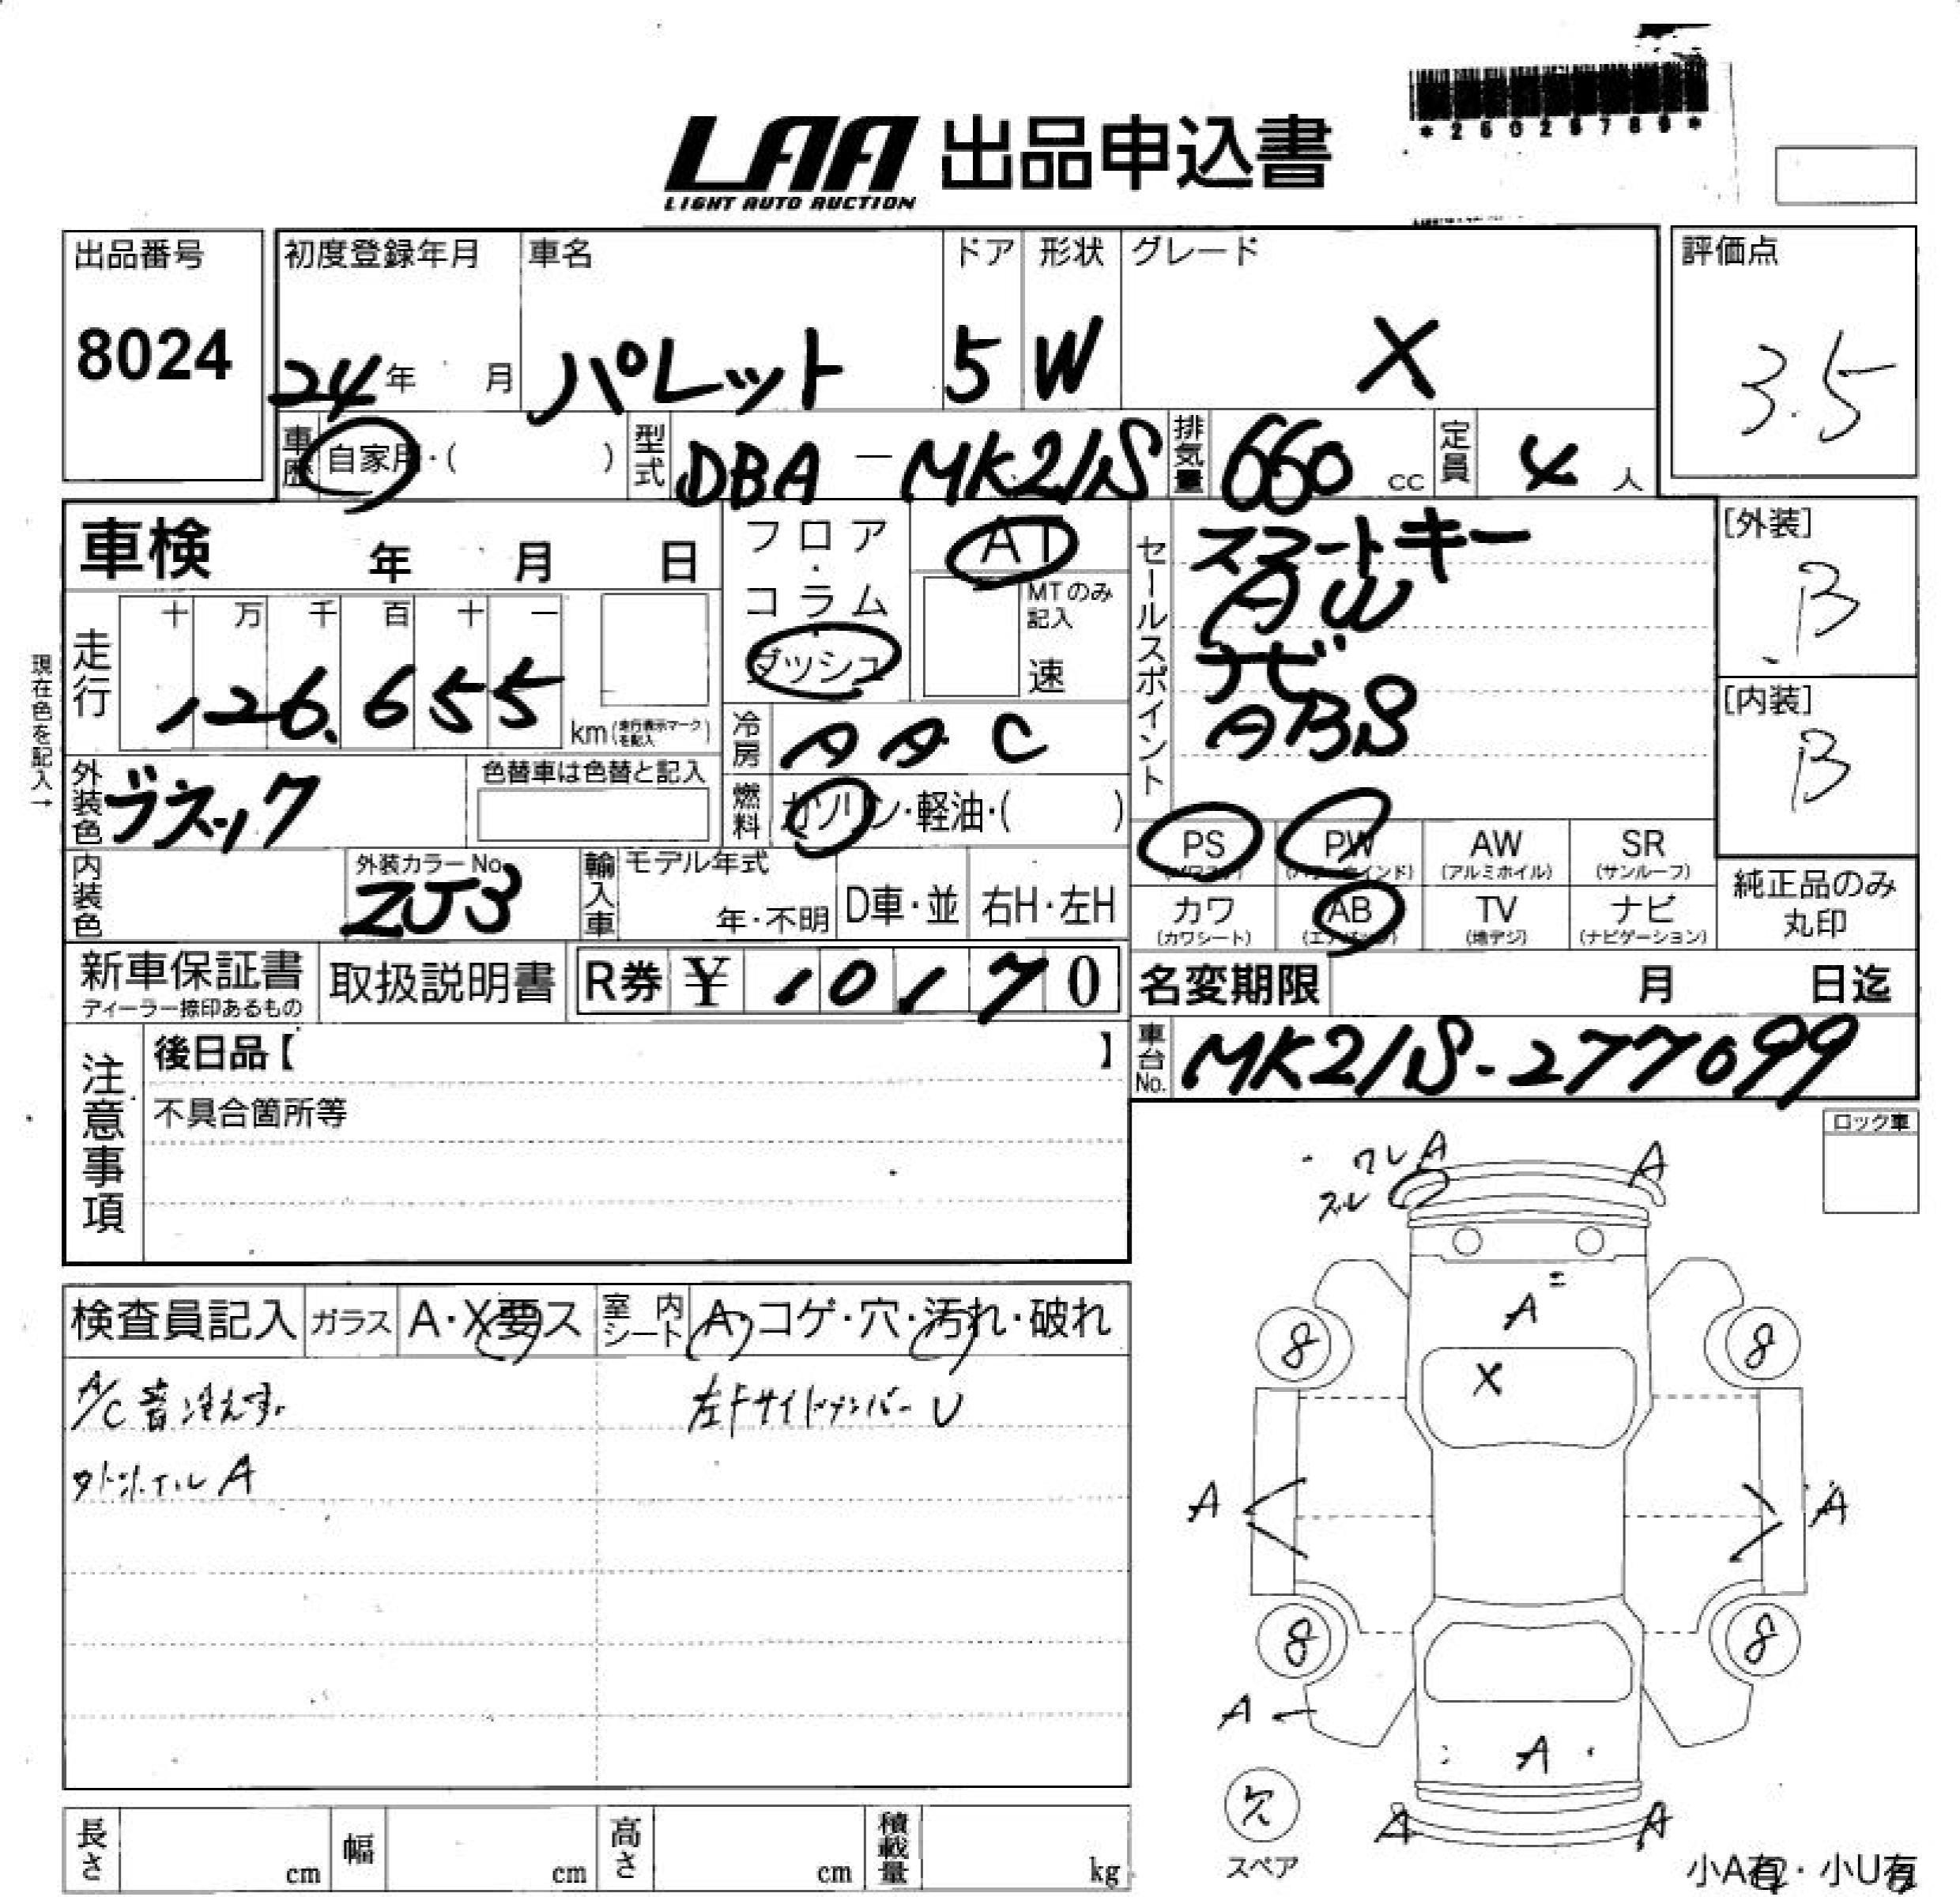 *25025789*
LAA 出品申込書
LIGHT AUTO AUCTION
出品番号 初度登録年月 車名 ドア 形状 グレード 評価点
8024 24年 月 パレット 5 W X 3.5
車歴 自家用・( ) 型式 DBA-MK21S 排気量 660 cc 定員 4 人
車検 年 月 日 フロア・コラム・ダッシュ AT MTのみ記入 速
セールスポイント スマートキー
AW
ナビ
ABS
[外装] B
[内装] B
現在色を記入→
走行 十 万 千 百 十 一
126.655 km(走行表示マークを記入)
冷房 AAC
外装色 ブラック 色替車は色替と記入 燃料 ガソリン・軽油・( )
PS (パワステ) PW (パワーウインド) AW (アルミホイル) SR (サンルーフ)
カワ (カワシート) AB (エアバッグ) TV (地デジ) ナビ (ナビゲーション)
純正品のみ丸印
内装色 外装カラーNo. ZJ3 輸入車 モデル年式 年・不明 D車・並 右H・左H
新車保証書 ディーラー捺印あるもの 取扱説明書 R券 ¥ 10170 名変期限 月 日迄
注意事項 後日品【 】
不具合箇所等
車台No. MK21S-277099
ロック車
ワレ A A
ズレ
検査員記入 ガラス A・X要ス 室内シート A・コゲ・穴・汚れ・破れ
A/C 音 冷えず 左Fサイドメンバー U
タイヤホイル A
A
X
8 8
A A
8 8
A
A
欠
スペア
A A
長さ cm 幅 cm 高さ cm 積載量 kg
小A有・小U有